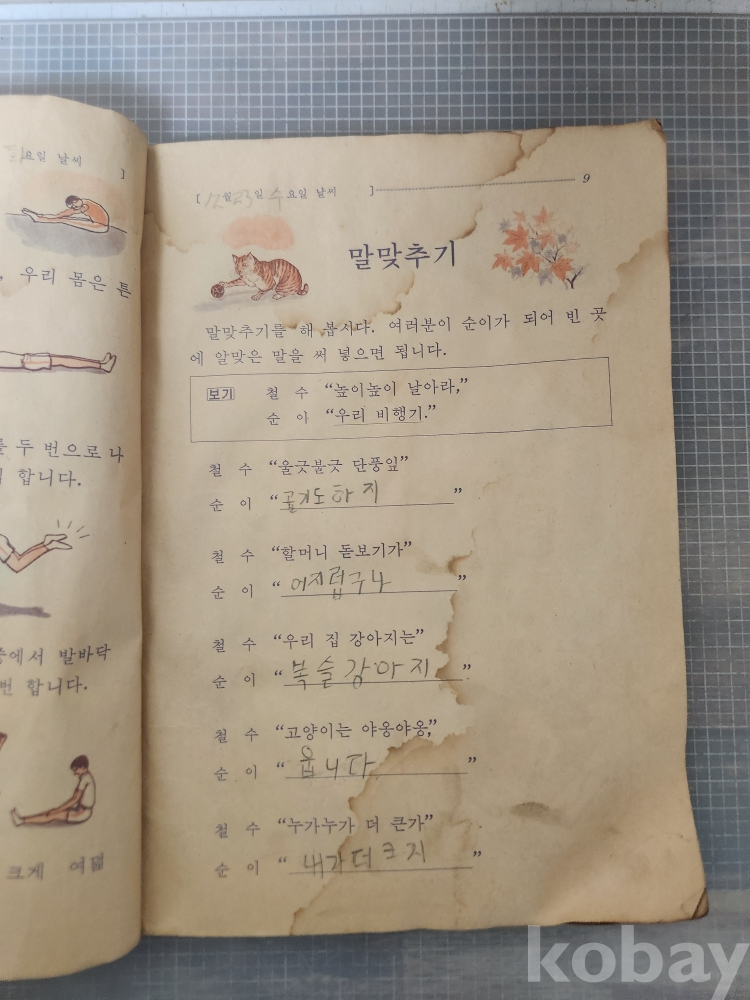 요일 날씨 ]
우리 몸은 튼
를 두 번으로 나
합니다.
에서 발바닥
번 합니다.
크게 여덟
[ 12월 23일 수요일 날씨 ] 9
말맞추기
말맞추기를 해 봅시다. 여러분이 순이가 되어 빈 곳
에 알맞은 말을 써 넣으면 됩니다.
보기 철 수 “높이높이 날아라,”
순 아 “우리 비행기.”
철 수 “울긋불긋 단풍잎”
순 이 “곱기도하지”
철 수 “할머니 돋보기가”
순 이 “어지럽구나”
철 수 “우리 집 강아지는”
순 이 “복슬강아지”.
철 수 “고양이는 야옹야옹,”
순 이 “웁니다”
철 수 “누가누가 더 큰가”
순 이 “내가더크지”
kobay